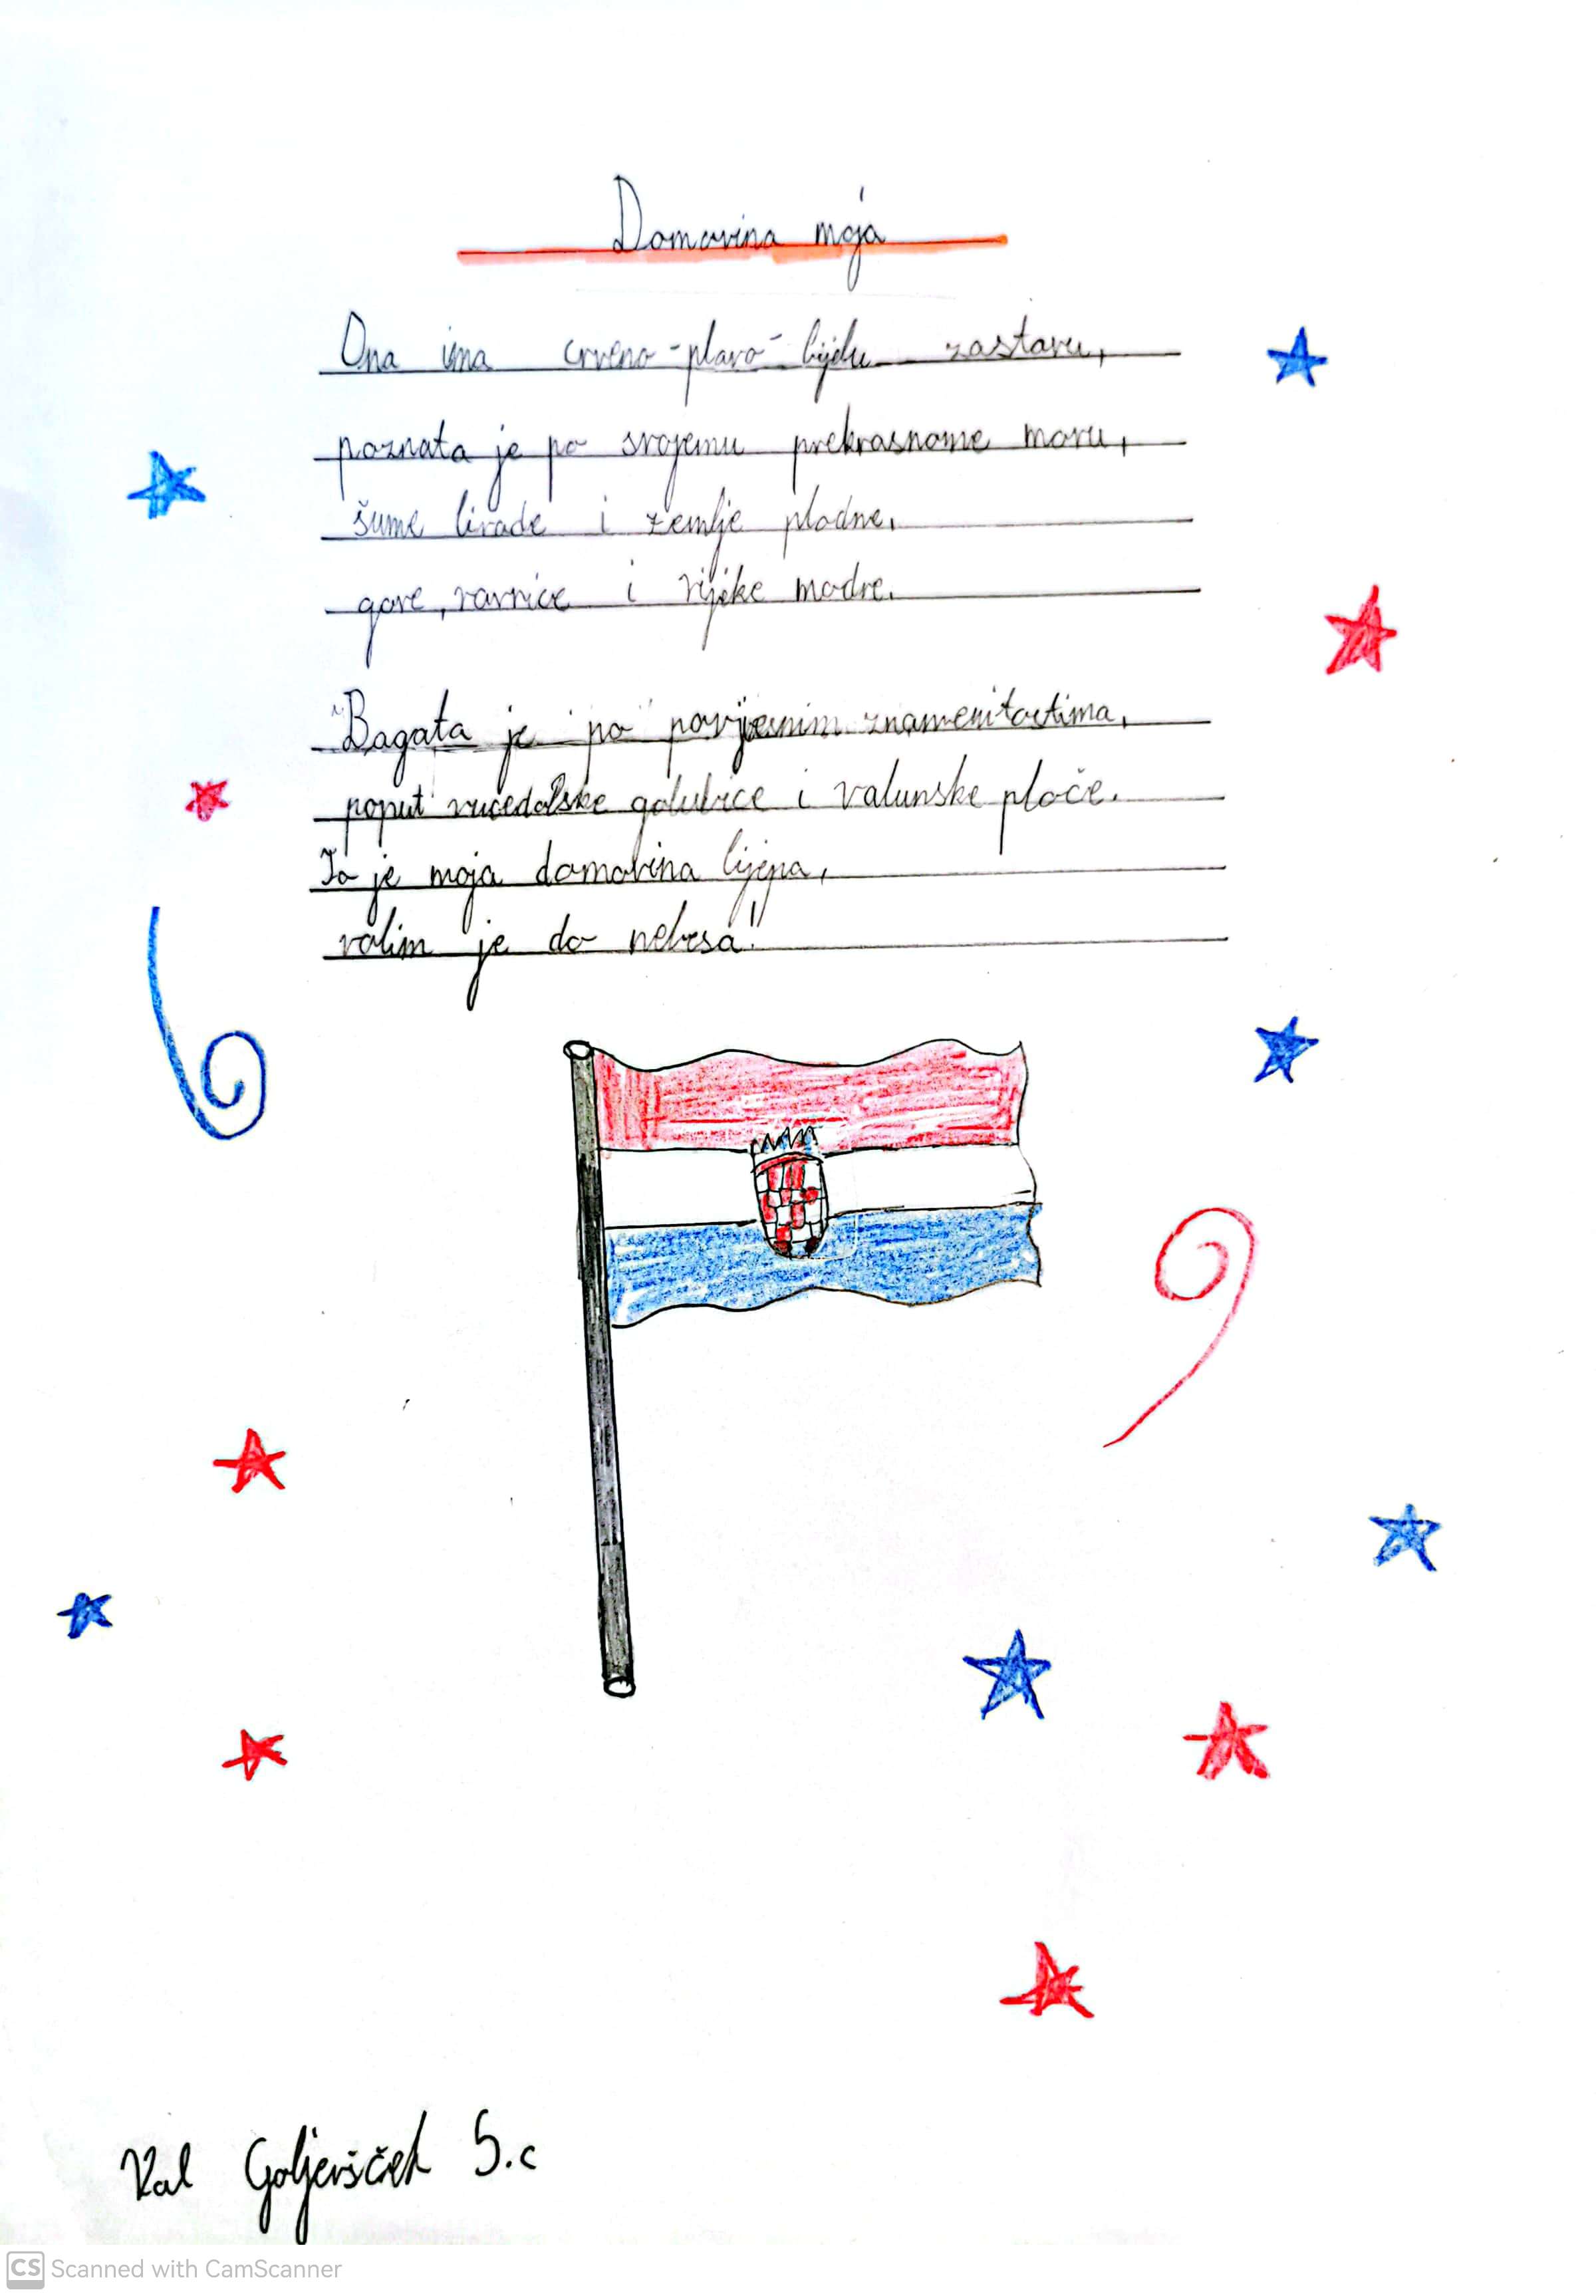 Domovina moja
Ona ima crveno-plavo-bijelu zastavu,
poznata je po svojemu prekrasnome moru,
šume livade i zemlje plodne,
gore, ravnice i rijeke modre.
Bogata je po povijesnim znamenitostima,
poput vučedolske golubice i valunske ploče.
To je moja domovina lijepa,
volim je do nebesa!
Val Goljevšček 5.c
CS Scanned with CamScanner